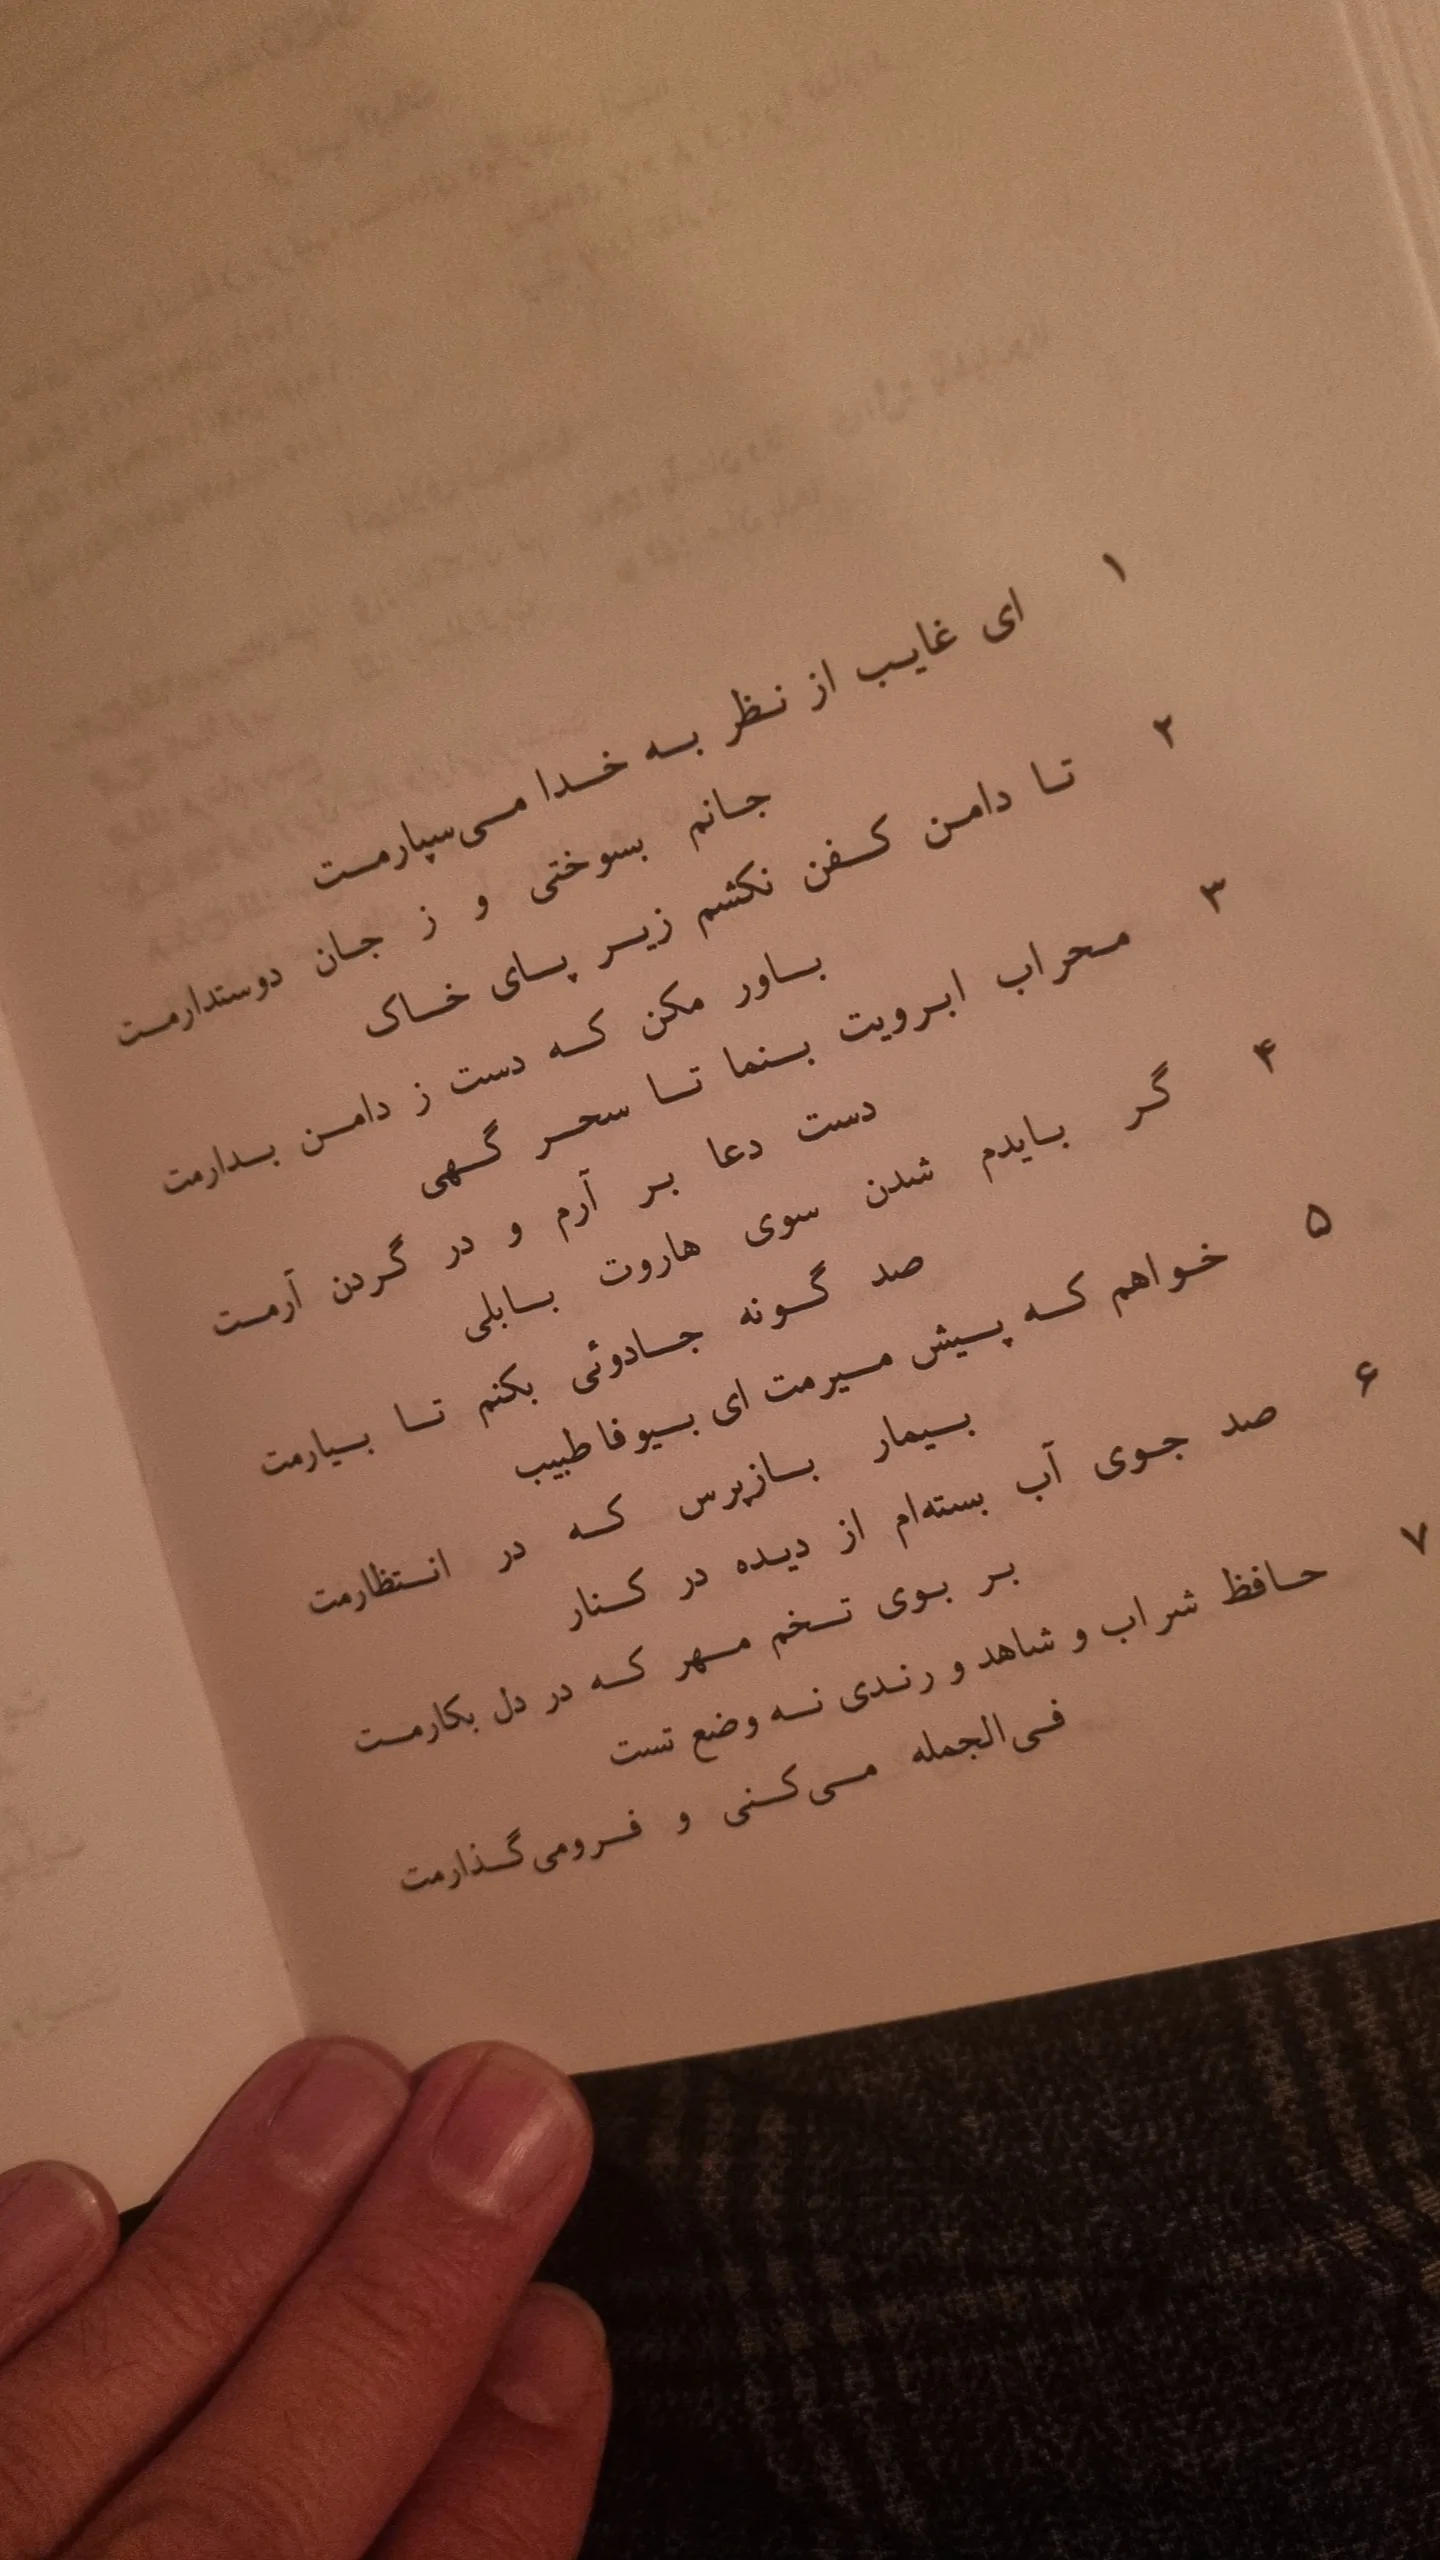 ۱ ای غایب از نظر به خدا می‌سپارمت
جانم بسوختی و ز جان دوستدارمت
۲ تا دامن کفن نکشم زیر پای خاک
باور مکن که دست ز دامن بدارمت
۳ محراب ابرویت بنما تا سحر گهی
دست دعا بر آرم و در گردن آرمت
۴ گر بایدم شدن سوی هاروت بابلی
صد گونه جادوئی بکنم تا بیارمت
۵ خواهم که پیش میرمت ای بیوفا طبیب
بیمار بازپرس که در انتظارمت
۶ صد جوی آب بسته‌ام از دیده در کنار
بر بوی تخم مهر که در دل بکارمت
۷ حافظ شراب و شاهد و رندی نه وضع تست
فی‌الجمله می‌کنی و فرومی‌گذارمت